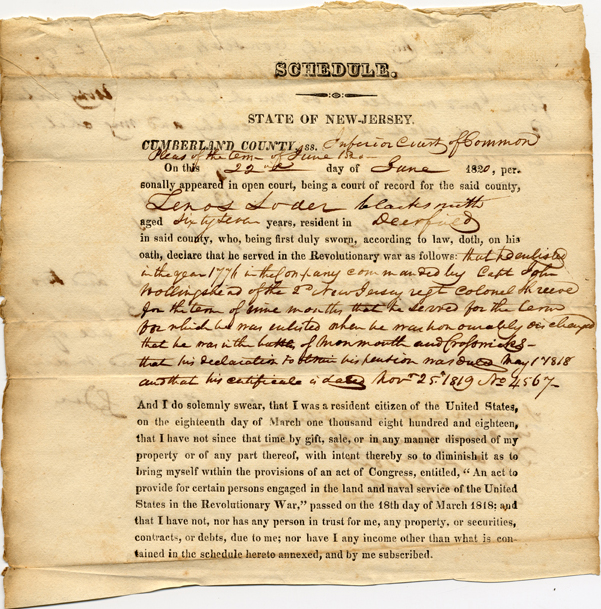 SCHEDULE.
STATE OF NEW-JERSEY.
CUMBERLAND COUNTY, ss. Inferior Court of Common
Pleas of the term of June 1820
On this 22nd day of June 1820, per-
sonally appeared in open court, being a court of record for the said county,
Loder blacksmith
aged Sixty Seven years, resident in Deerfield
in said county, who, being first duly sworn, according to law, doth, on his
oath, declare that he served in the Revolutionary war as follows: that he enlisted
in the year 1776 in the Company commanded by Capt John
Hollingshead of the 2d New Jersey regt Colonel Shreeve
for the term of nine months that he served for the term
for which he was enlisted when he was honourably discharged
that he was in the battle of Monmouth and Crosswicks
that his declaration to his pension was dated May 1st 1818
and that his certificate is dated Novr 25th 1819 No 4567
And I do solemnly swear, that I was a resident citizen of the United States,
on the eighteenth day of March one thousand eight hundred and eighteen,
that I have not since that time by gift, sale, or in any manner disposed of my
property or of any part thereof, with intent thereby so to diminish it as to
bring myself within the provisions of an act of Congress, entitled, "An act to
provide for certain persons engaged in the land and naval service of the United
States in the Revolutionary War," passed on the 18th day of March 1818; and
that I have not, nor has any person in trust for me, any property, or securities,
contracts, or debts, due to me; nor have I any income other than what is con-
tained in the schedule hereto annexed, and by me subscribed.